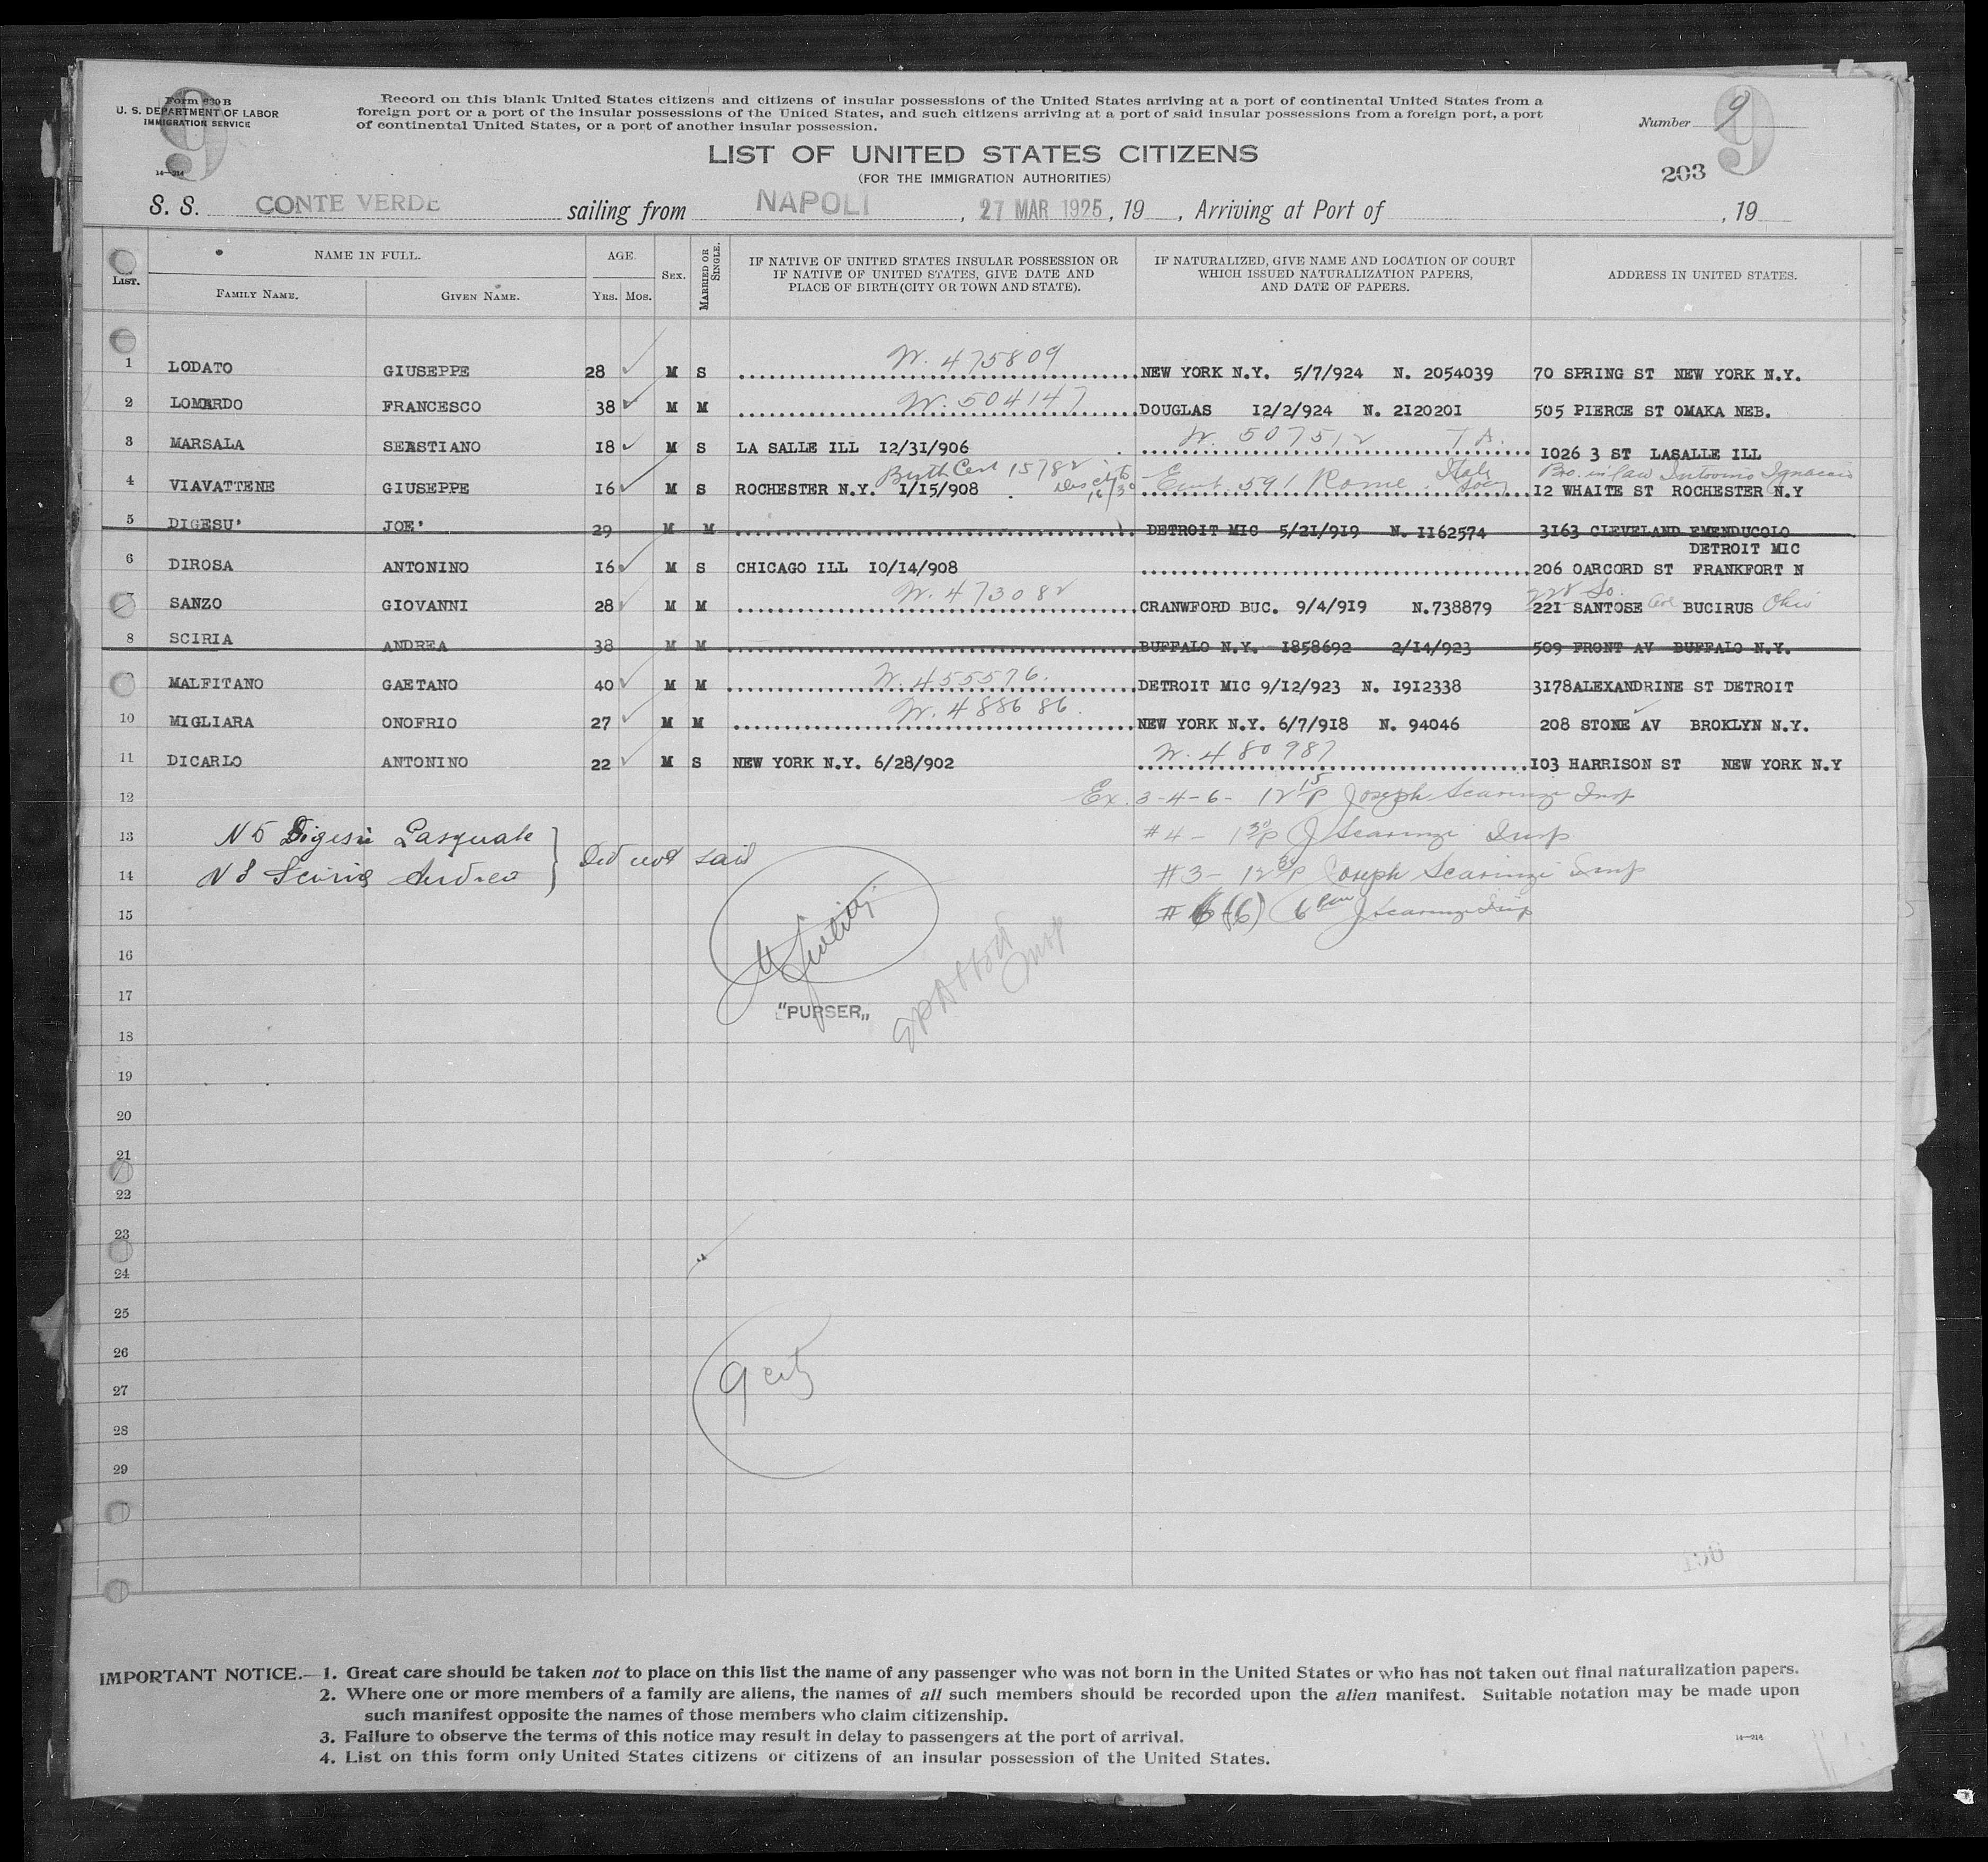 Form 630 B
U. S. DEPARTMENT OF LABOR
IMMIGRATION SERVICE
14—214
9
Record on this blank United States citizens and citizens of insular possessions of the United States arriving at a port of continental United States from a
foreign port or a port of the insular possessions of the United States, and such citizens arriving at a port of said insular possessions from a foreign port, a port
of continental United States, or a port of another insular possession.
Number 9
9
LIST OF UNITED STATES CITIZENS
(FOR THE IMMIGRATION AUTHORITIES)
203
S. S. CONTE VERDE sailing from NAPOLI, 27 MAR 1925, 19 , Arriving at Port of , 19
LIST. NAME IN FULL. AGE. SEX. MARRIED OR SINGLE. IF NATIVE OF UNITED STATES INSULAR POSSESSION OR IF NATIVE OF UNITED STATES, GIVE DATE AND PLACE OF BIRTH (CITY OR TOWN AND STATE). IF NATURALIZED, GIVE NAME AND LOCATION OF COURT WHICH ISSUED NATURALIZATION PAPERS, AND DATE OF PAPERS. ADDRESS IN UNITED STATES.
FAMILY NAME. GIVEN NAME. YRS. MOS.
W. 475809
1 LODATO GIUSEPPE 28 M S NEW YORK N.Y. 5/7/924 N. 2054039 70 SPRING ST NEW YORK N.Y.
W. 504147
2 LOMARDO FRANCESCO 38 M M DOUGLAS 12/2/924 N. 2120201 505 PIERCE ST OMAKA NEB.
W. 507512 T.A.
3 MARSALA SEASTIANO 18 M S LA SALLE ILL 12/31/906 1026 3 ST LASALLE ILL
Birth Cert 15782 Italy Bro. in law Antoonio Ignaccio
4 VIAVATTENE GIUSEPPE 16 M S ROCHESTER N.Y. 1/15/908 591 Rome 12 WHAITE ST ROCHESTER N.Y
5 DIGESU' JOE' 29 M M DETROIT MIC 5/21/919 N. 1162574 3163 CLEVELAND EMENDUCOLO
DETROIT MIC
6 DIROSA ANTONINO 16 M S CHICAGO ILL 10/14/908 206 OARCORD ST FRANKFORT N
W. 473082 228 So.
7 SANZO GIOVANNI 28 M M CRANWFORD BUC. 9/4/919 N.738879 221 SANTOSE Ave BUCIRUS Ohio
8 SCIRIA ANDREA 38 M M BUFFALO N.Y. 1858692 2/14/923 509 FRONT AV BUFFALO N.Y.
W. 455576.
9 MALFITANO GAETANO 40 M M DETROIT MIC 9/12/923 N. 1912338 3178ALEXANDRINE ST DETROIT
W. 488686.
10 MIGLIARA ONOFRIO 27 M M NEW YORK N.Y. 6/7/918 N. 94046 208 STONE AV BROKLYN N.Y.
W. 480987
11 DICARLO ANTONINO 22 M S NEW YORK N.Y. 6/28/902 103 HARRISON ST NEW YORK N.Y
12 Ex. 3-4-6- 12 15 P Joseph Scarinzi Insp
13 N 5 Digesù Pasquale #4 - 1 30 P J Scarinzi Insp
Did not sail
14 N 8 Sciria Andrea #3 - 12 30 P Joseph Scarinzi Insp
15 #6 (6) 6 pm J Scarinzi Insp
16
17
"PURSER„
Insp
18
19
20
21
22
23
24
25
26
27 9 cits
28
29
IMPORTANT NOTICE.—1. Great care should be taken not to place on this list the name of any passenger who was not born in the United States or who has not taken out final naturalization papers.
2. Where one or more members of a family are aliens, the names of all such members should be recorded upon the alien manifest. Suitable notation may be made upon
such manifest opposite the names of those members who claim citizenship.
3. Failure to observe the terms of this notice may result in delay to passengers at the port of arrival.
4. List on this form only United States citizens or citizens of an insular possession of the United States.
14—214